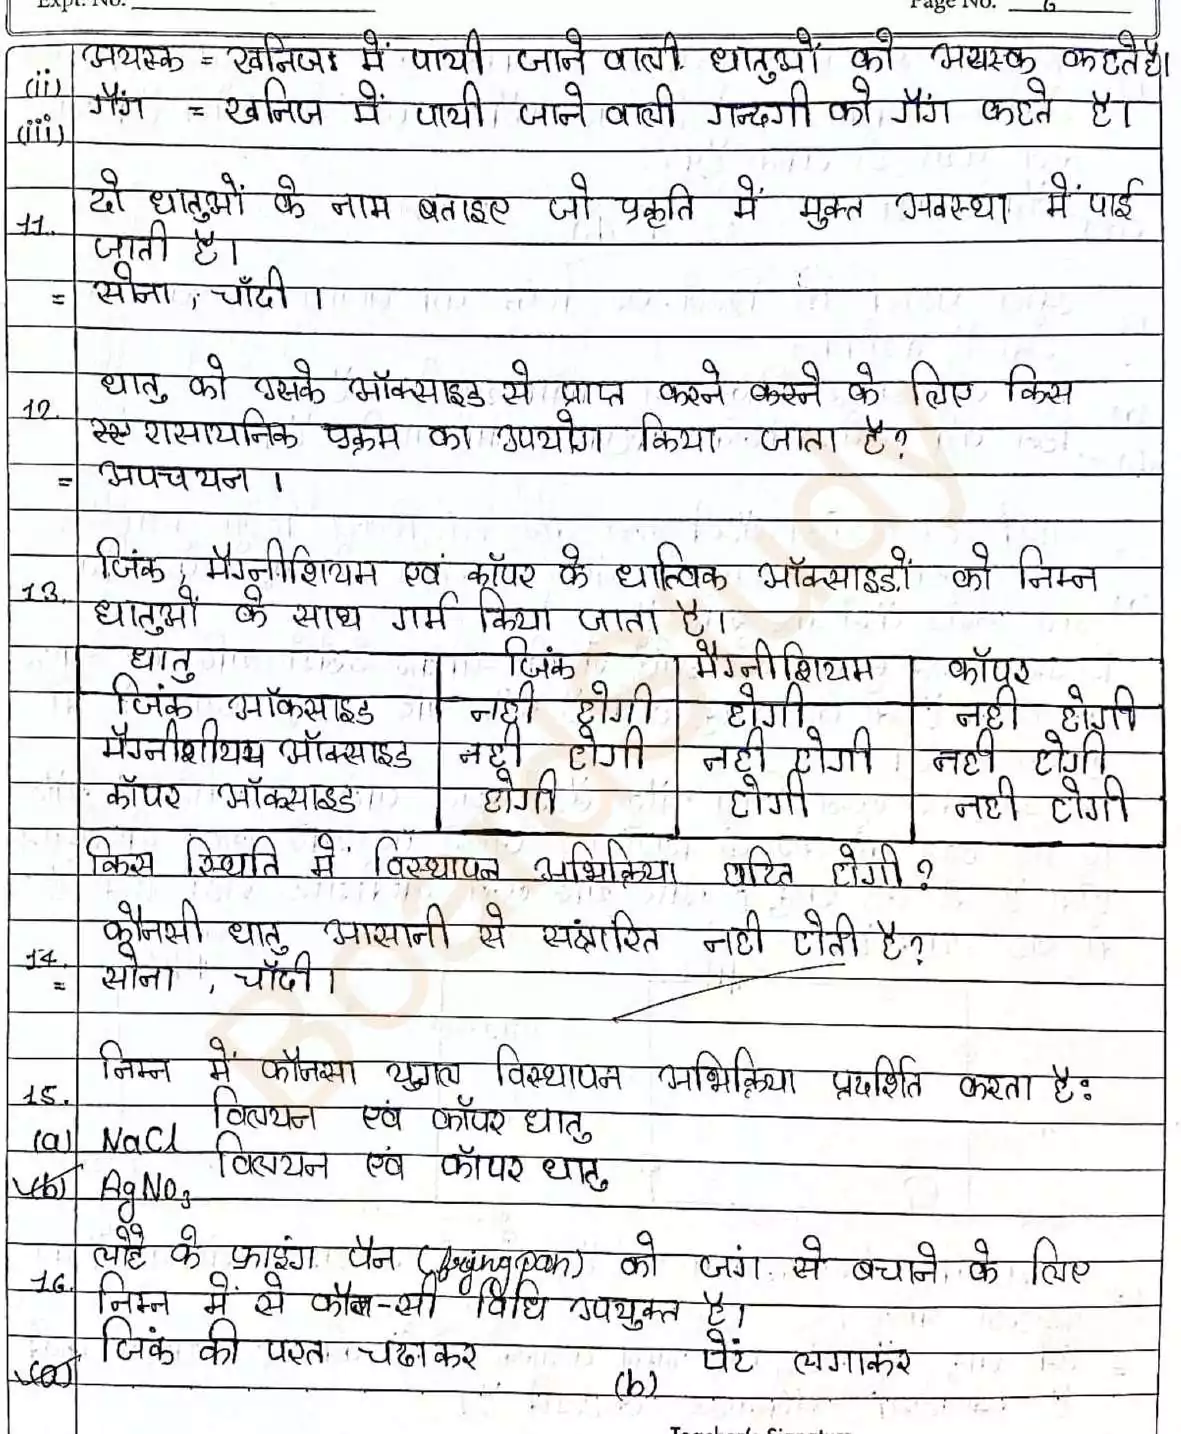 Expt. No.
Page No. 6
(ii) अयस्क = खनिज: में पायी जाने वाली धातुओं को अयस्क कहते है।
(iii) गैंग = खनिज में पायी जाने वाली गन्दगी को गैंग कहते है।
11. दो धातुओं के नाम बताइए जो प्रकृति में मुक्त अवस्था में पाई
जाती है।
= सोना, चाँदी।
12. धातु को उसके ऑक्साइड से प्राप्त करने करने के लिए किस
रासायनिक प्रक्रम का उपयोग किया जाता है?
= अपचयन।
13. जिंक, मैग्नीशियम एवं कॉपर के धात्विक ऑक्साइडों को निम्न
धातुओं के साथ गर्म किया जाता है।
धातु जिंक मैग्नीशियम कॉपर
जिंक ऑक्साइड नही होगी होगी नही होगी
मैग्नीशीयम ऑक्साइड नही होगी नही होगी नही होगी
कॉपर ऑक्साइड होगी होगी नही होगी
किस स्थिति मे विस्थापन अभिक्रिया घटित होगी?
14. कौनसी धातु आसानी से संक्षारित नही होती है?
= सोना, चाँदी।
15. निम्न में कौनसा युगल विस्थापन अभिक्रिया प्रदर्शित करता है:
(a) NaCl विलयन एवं कॉपर धातु
(b) AgNO3 विलयन एवं कॉपर धातु
16. लोहे के फ्राइंग पैन (frying pan) को जंग से बचाने के लिए
निम्न में से कौन-सी विधि उपयुक्त है।
(a) जिंक की परत चढाकर (b) पेंट लगाकर
Teacher's Signature
Board Study